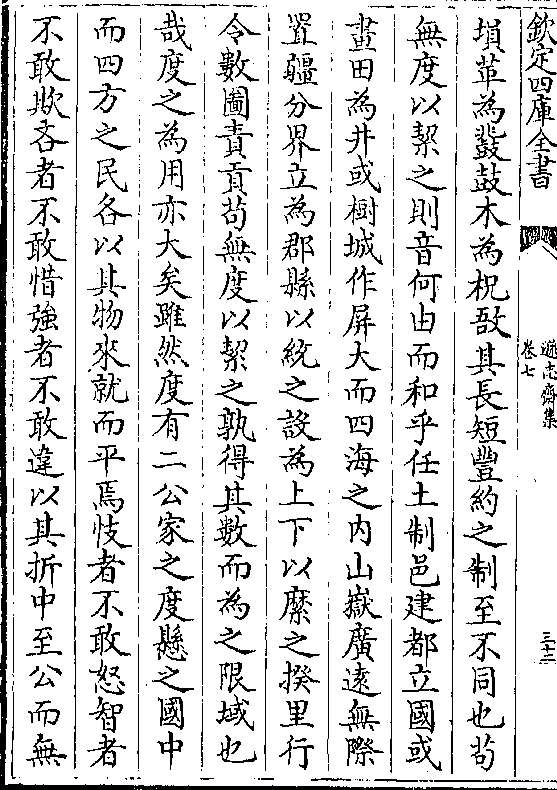 欽定四庫全書
遜志齋集
卷七
三十三
塤革為鼗鼓木為柷敔其長短豐約之制至不同也茍
無度以絜之則音何由而和乎任土制邑建都立國或
畫田為井或樹城作屏大而四海之内山嶽廣逺無際
置疆分界立為郡縣以統之設為上下以縻之揆里行
令數圖責貢茍無度以絜之孰得其數而為之限域也
哉度之為用亦大矣雖然度有二公家之度懸之國中
而四方之民各以其物來就而平焉忮者不敢怒智者
不敢欺吝者不敢惜強者不敢違以其折中至公而無